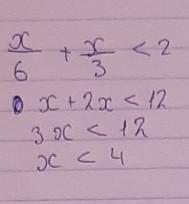 x/6 + x/3 < 2
x + 2x < 12
3x < 12
x < 4